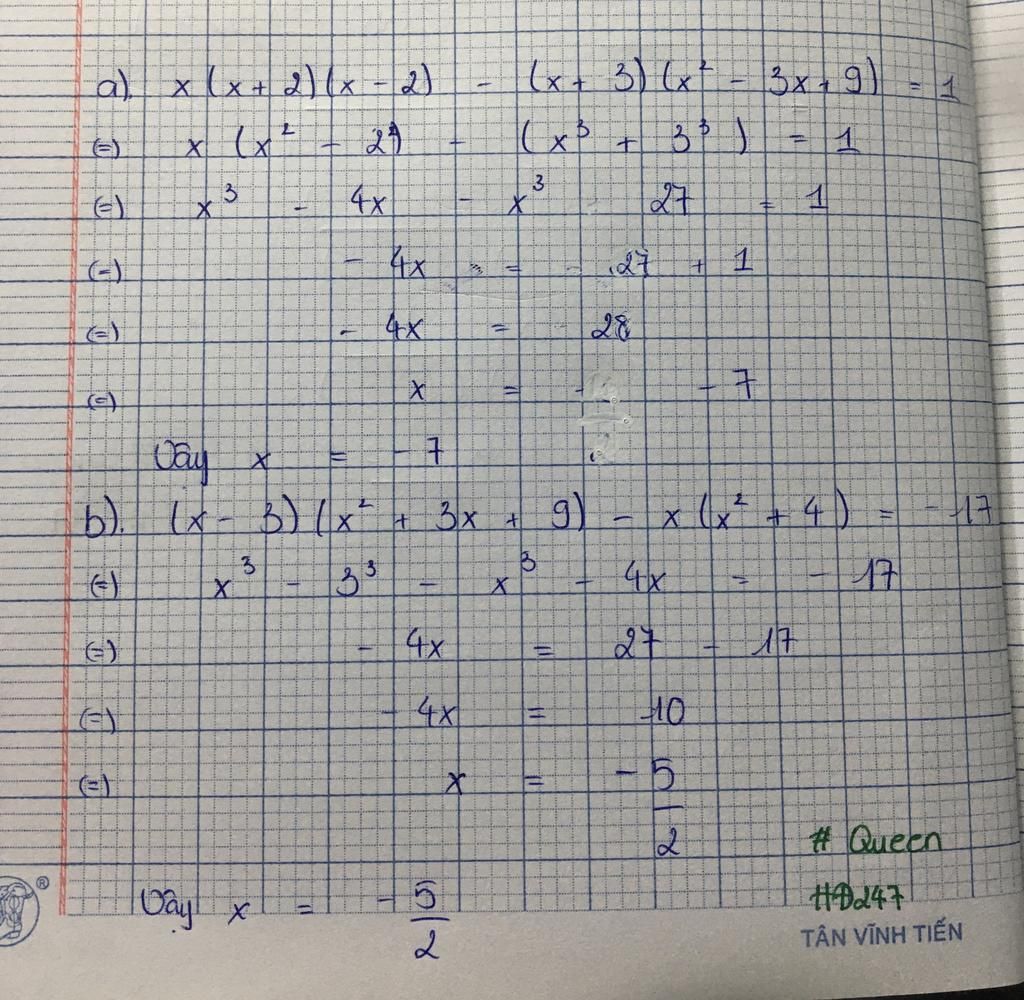 a). x(x + 2)(x - 2) - (x + 3)(x² - 3x + 9) = 1
(=) x (x² - 2²) - (x³ + 3³) = 1
(=) x³ - 4x - x³ - 27 = 1
(=) - 4x = 27 + 1
(=) - 4x = 28
(=) x = - 7
Vậy x = - 7
b). (x - 3)(x² + 3x + 9) - x(x² + 4) = - 17
(=) x³ - 3³ - x³ - 4x = - 17
(=) - 4x = 27 - 17
(=) - 4x = 10
(=) x = - 5/2
# Queen
Vậy x = - 5/2
#D247
®
TÂN VĨNH TIẾN